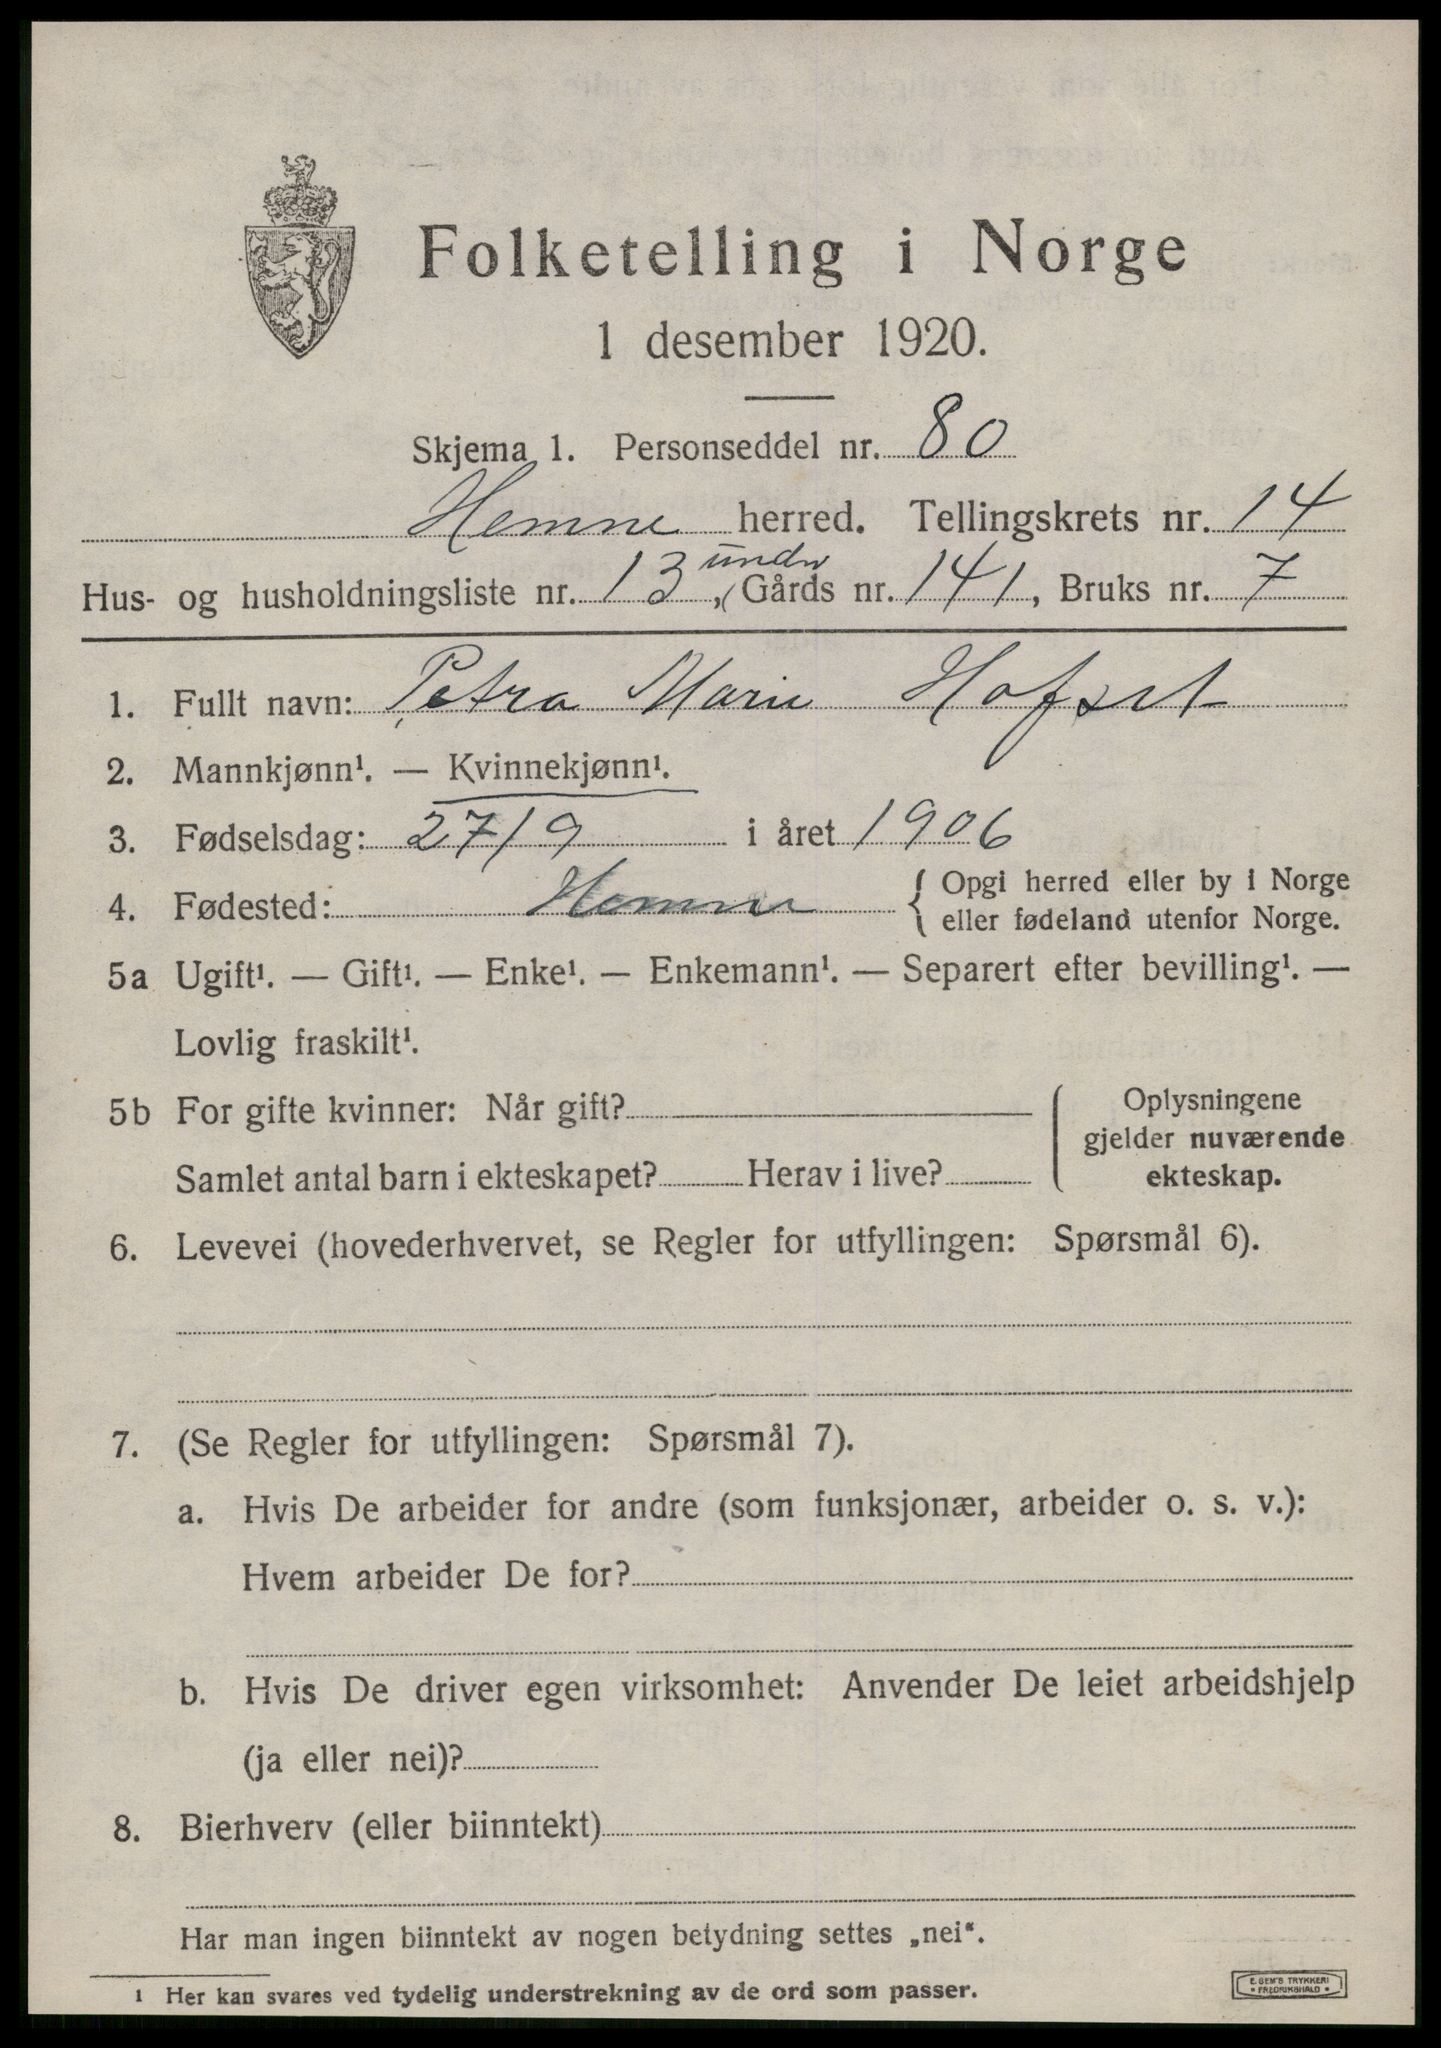 Folketelling i Norge
1 desember 1920.
Skjema 1. Personseddel nr. 80
Hemne herred. Tellingskrets nr. 14
under
Hus- og husholdningsliste nr. 13, (Gårds nr. 141, Bruks nr. 7
1. Fullt navn: Petra Marie
2. Mannkjønn¹. — Kvinnekjønn¹.
3. Fødselsdag: 27/9 i året 1906
4. Fødested: Hemne { Opgi herred eller by i Norge
eller fødeland utenfor Norge.
5a Ugift¹. — Gift¹. — Enke¹. — Enkemann¹. — Separert efter bevilling¹. —
Lovlig fraskilt¹.
5b For gifte kvinner: Når gift?
Samlet antal barn i ekteskapet? Herav i live?
Oplysningene
gjelder nuværende
ekteskap.
6. Levevei (hovederhvervet, se Regler for utfyllingen: Spørsmål 6).
7. (Se Regler for utfyllingen: Spørsmål 7).
a. Hvis De arbeider for andre (som funksjonær, arbeider o. s. v.):
Hvem arbeider De for?
b. Hvis De driver egen virksomhet: Anvender De leiet arbeidshjelp
(ja eller nei)?
8. Bierhverv (eller biinntekt)
Har man ingen biinntekt av nogen betydning settes „nei“.
1 Her kan svares ved tydelig understrekning av de ord som passer.
E. SEM'S TRYKKERI
• FREDRIKSHALD •